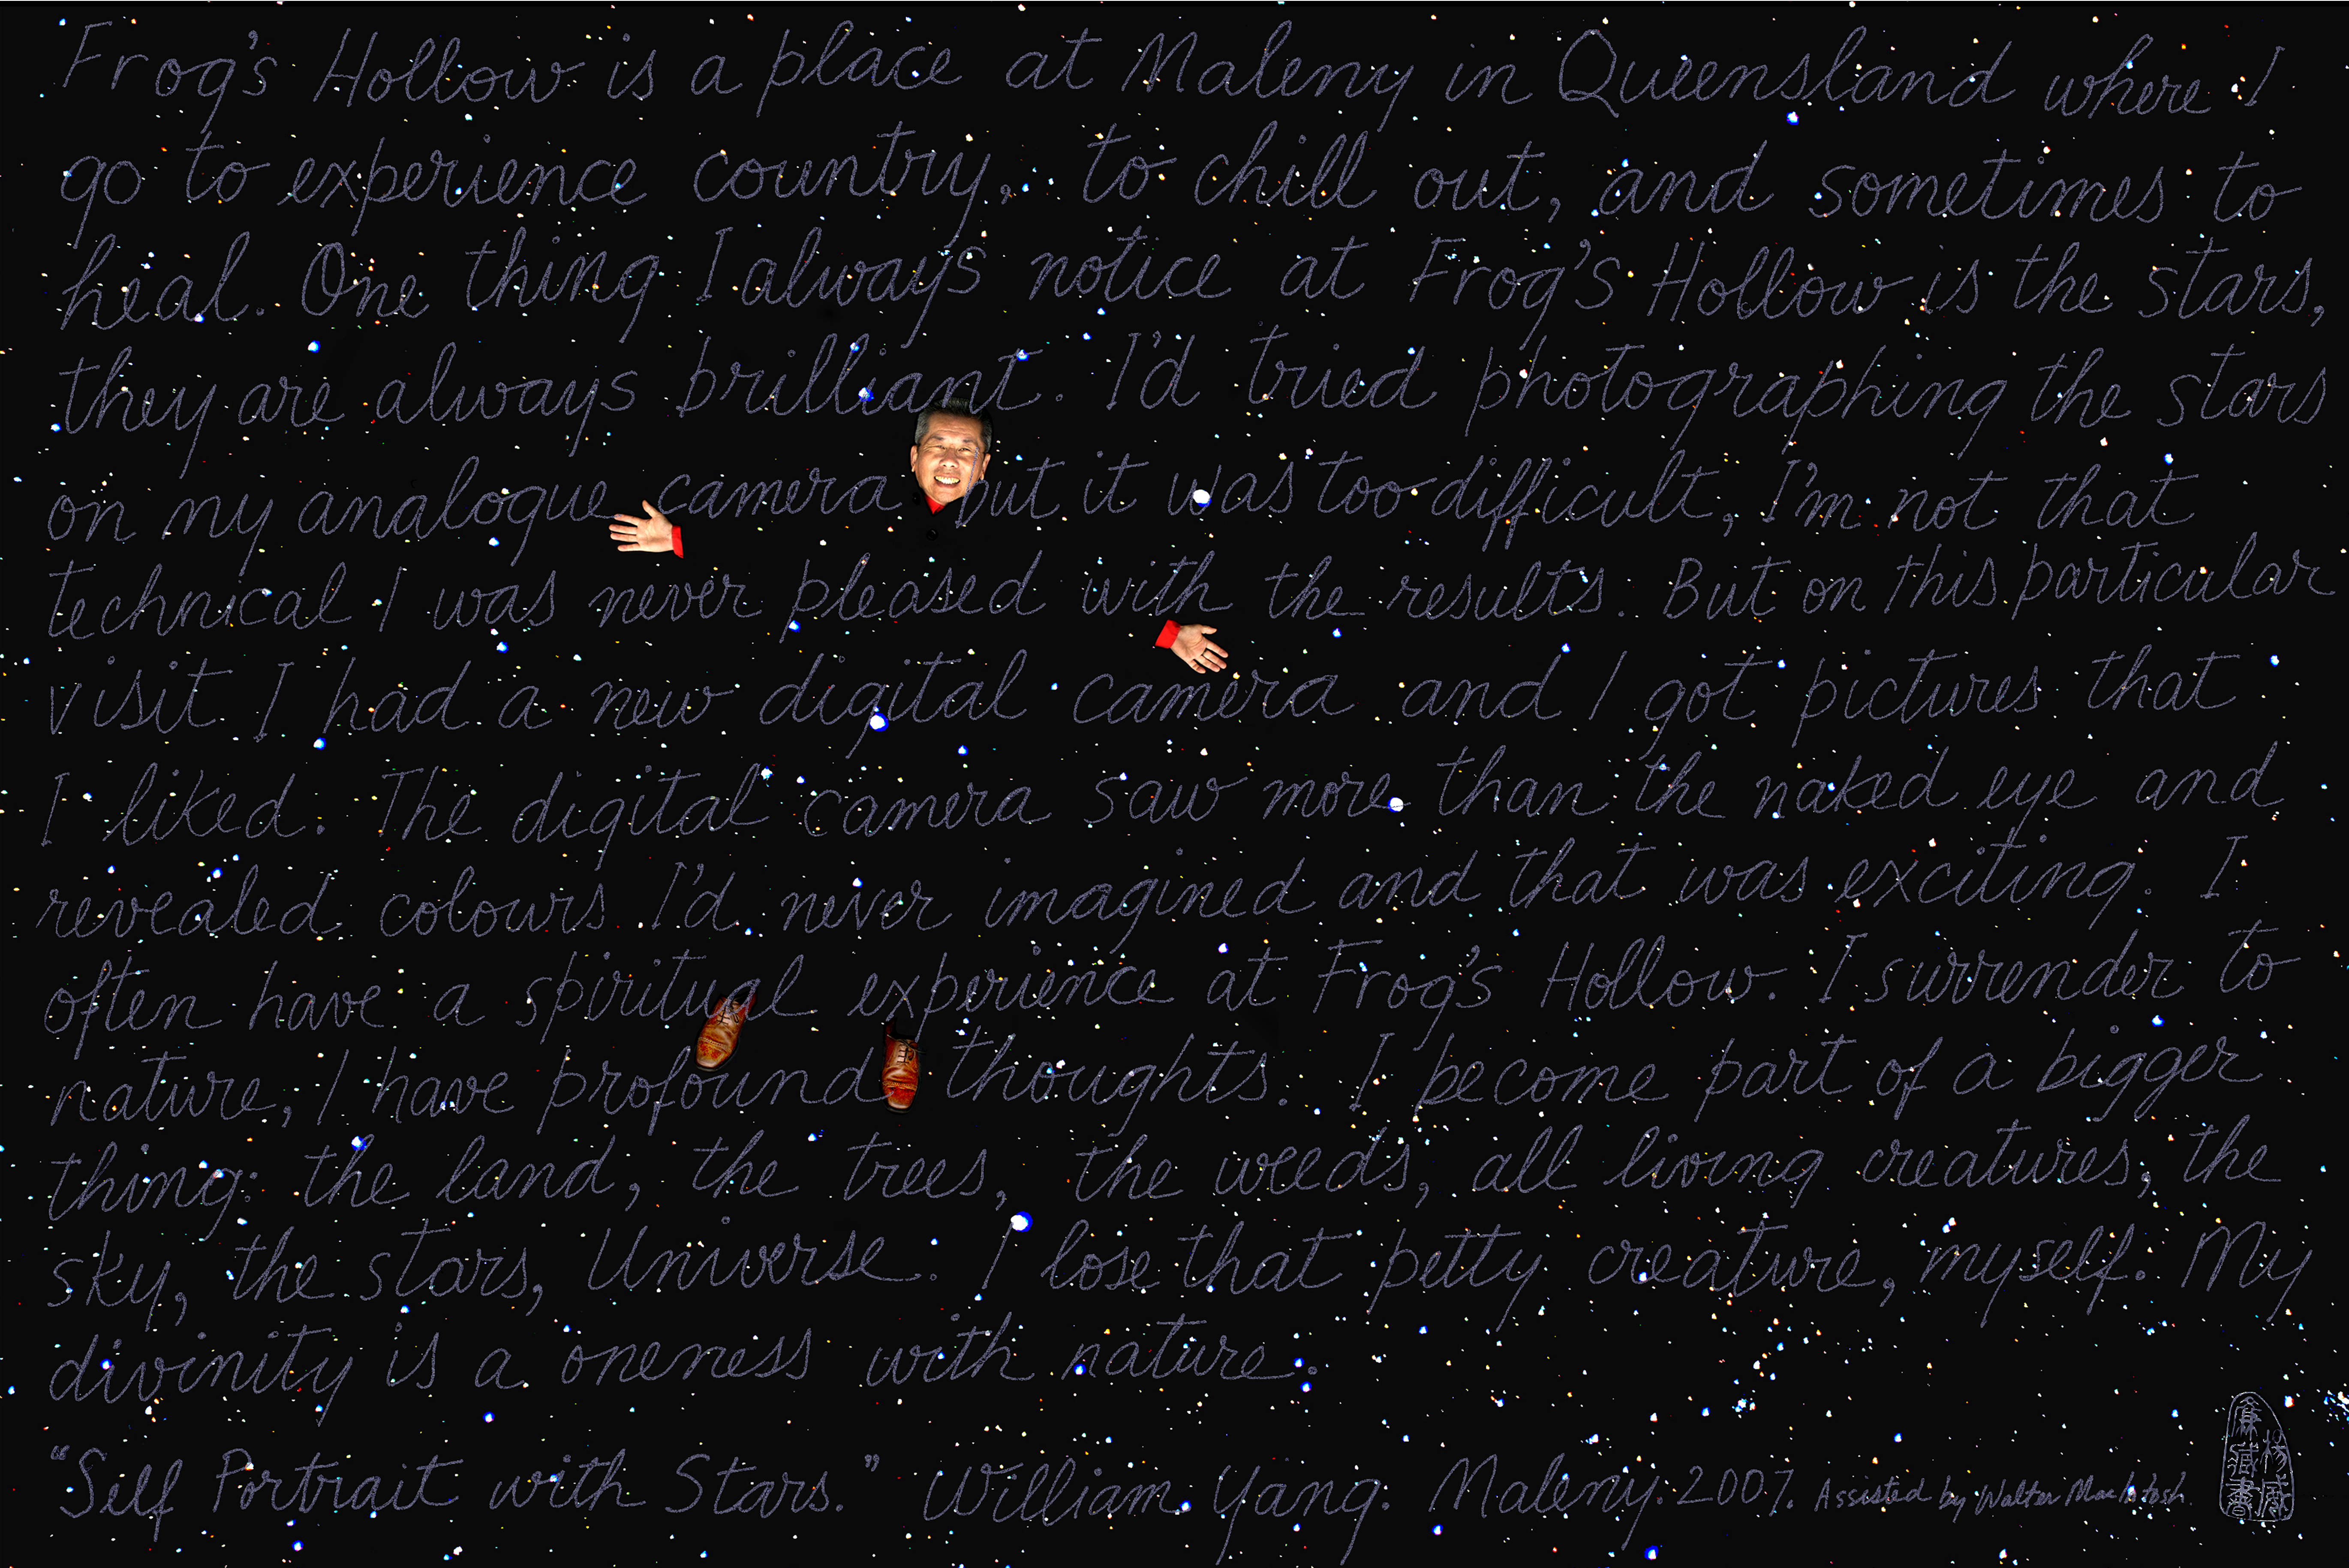 Frog's Hollow is a place at Maleny in Queensland where I
go to experience country, to chill out, and sometimes to
heal. One thing I always notice at Frog's Hollow is the stars,
they are always brilliant. I'd tried photographing the stars
on my analogue camera but it was too difficult, I'm not that
technical I was never pleased with the results. But on this particular
visit I had a new digital camera and I got pictures that
I liked. The digital camera saw more than the naked eye and
revealed colours I'd never imagined and that was exciting. I
often have a spiritual experience at Frog's Hollow. I surrender to
nature, I have profound thoughts. I become part of a bigger
thing: the land, the trees, the weeds, all living creatures, the
sky, the stars, Universe. I lose that petty creature, myself. My
divinity is a oneness with nature.
"Self Portrait with Stars." William Yang. Maleny. 2007. Assisted by Walter MacIntosh.